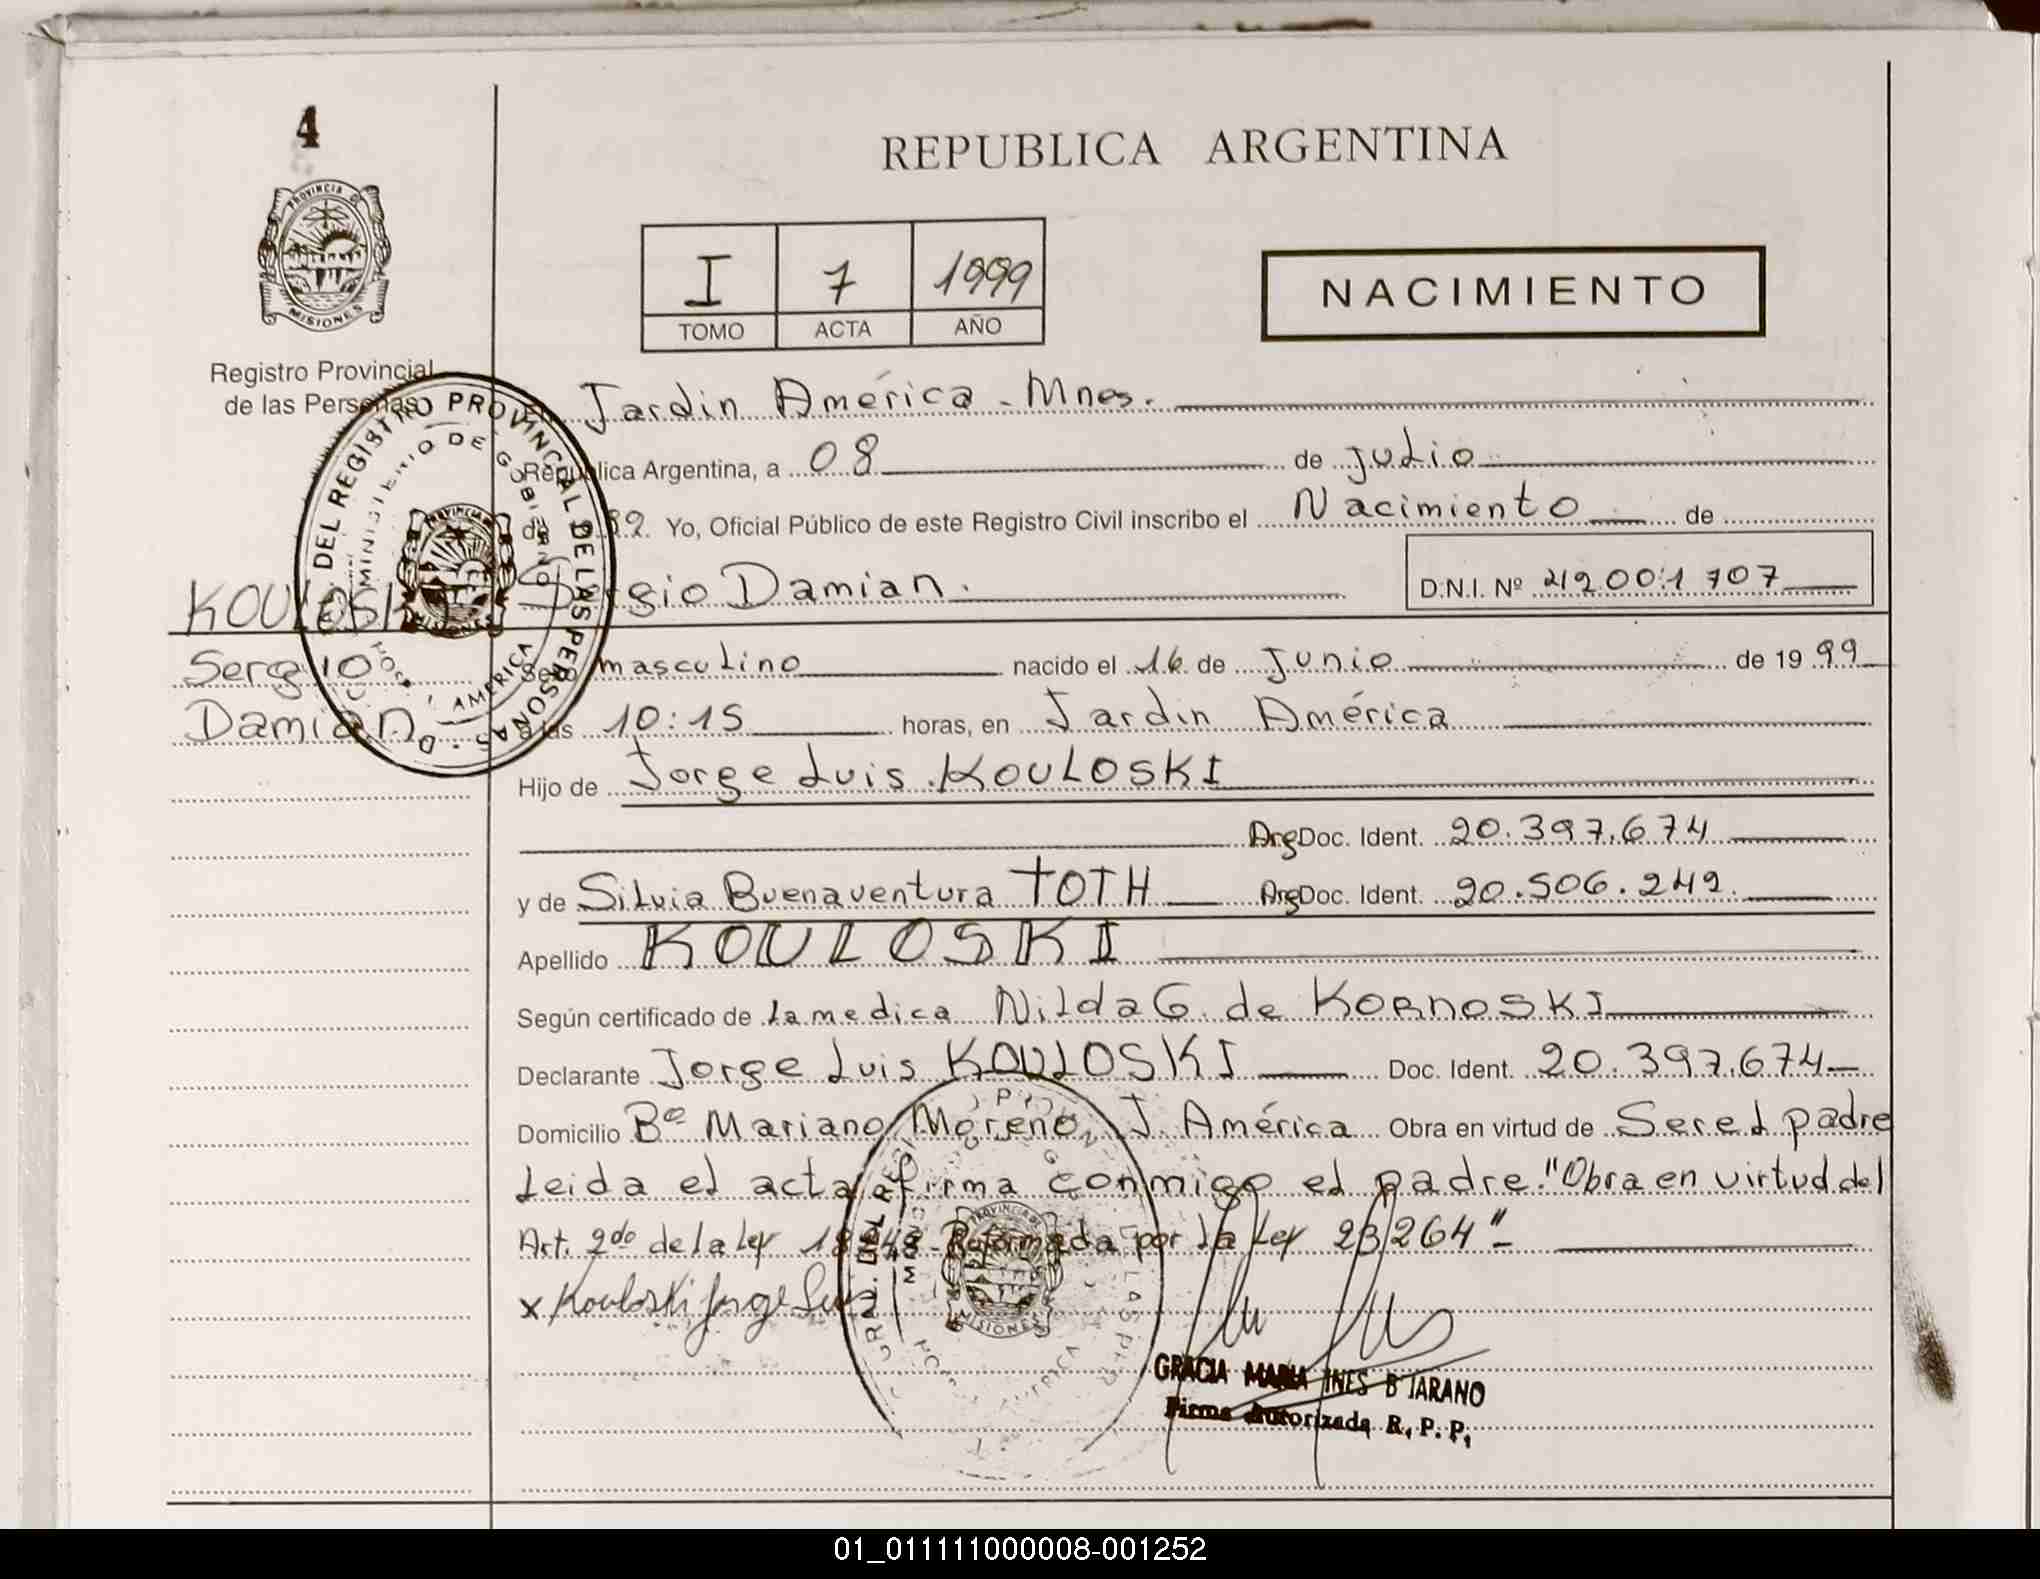 4
REPUBLICA ARGENTINA
PROVINCIA DE
MISIONES
I 7 1999
TOMO ACTA AÑO
NACIMIENTO
Registro Provincial
de las Personas
Jardin América - Mnes.
República Argentina, a 08 de julio
Yo, Oficial Público de este Registro Civil inscribo el Nacimiento de
KOULOSKI Sergio Damian. D.N.I. Nº 42.001.707
Sergio Sexo masculino nacido el 16 de Junio de 1999
Damian a las 10:15 horas, en Jardin América
Hijo de Jorge Luis KOULOSKI
Arg Doc. Ident. 20.397.674
y de Silvia Buenaventura TOTH Arg Doc. Ident. 20.506.242
Apellido KOULOSKI
Según certificado de la medica Nilda G. de KORNOSKI
Declarante Jorge Luis KOULOSKI Doc. Ident. 20.397.674
Domicilio Bº Mariano Moreno J. América Obra en virtud de Ser el padre
Leida el acta firma conmigo el padre. "Obra en virtud del
Art. 2do de la Ley Reformada por la Ley 23264"
x Kouloski Jorge Luis
GRACIA MARIA INES B JARANO
Firma Autorizada R. P. P.
DEL REGISTRO PROVINCIAL DE LAS PERSONAS
MINISTERIO DE GOBIERNO
AMERICA
PROVINCIA DE
MISIONES
01_011111000008-001252